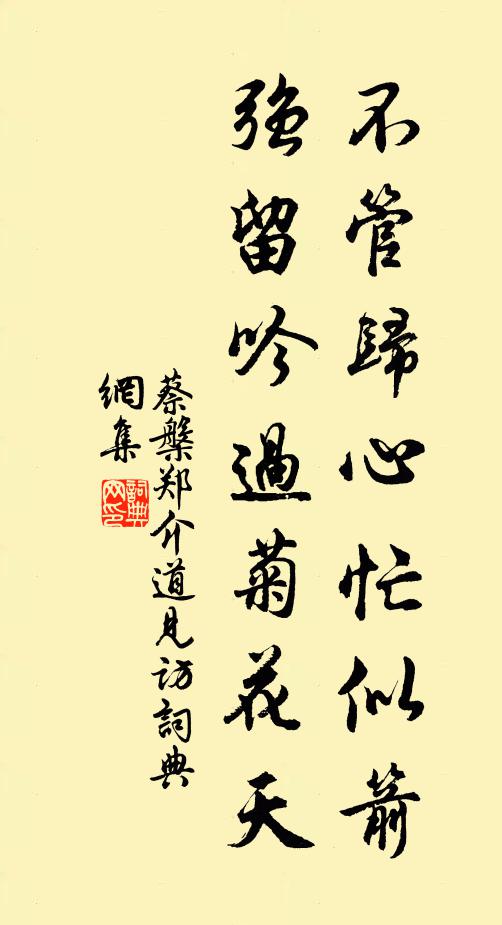 不管歸心忙似箭
强留吟過菊花天
蔡槃郑介道見访詞典
網集
詞典
网印